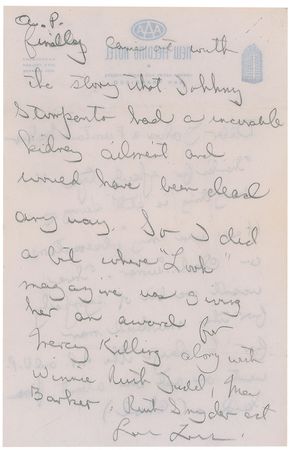 A. P.
finally came out with
the story that Johnny
Stompento had a incurable
kidney ailment and
would have been dead
any way. So I did
a bit where "Look"
magazine was giving
her an award for
Mercy Killing along with
Winnie Ruth Judd, Ma
Barker, Ruth Snyder ect
Love